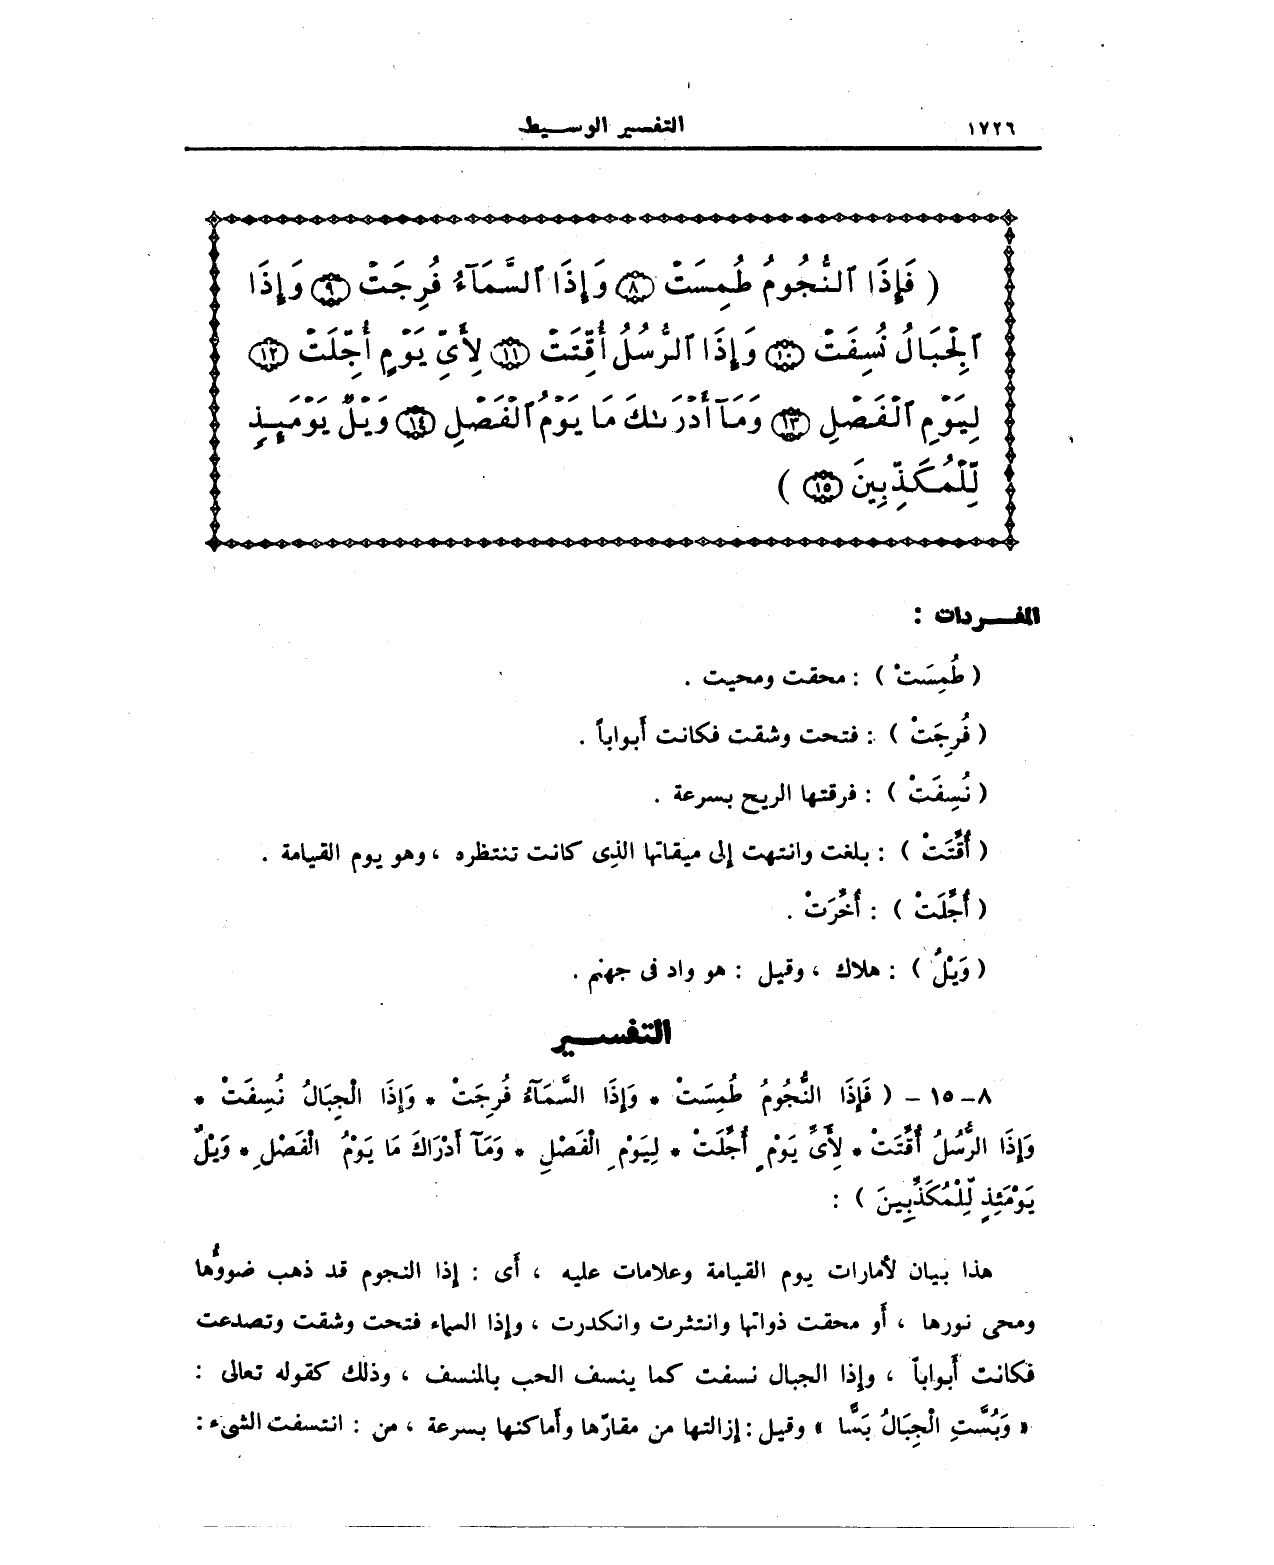 ١٧٢٦ التفسير الوسيط
( فَإِذَا ٱلنُّجُومُ طُمِسَتْ ٨ وَإِذَا ٱلسَّمَآءُ فُرِجَتْ ٩ وَإِذَا
ٱلْجِبَالُ نُسِفَتْ ١٠ وَإِذَا ٱلرُّسُلُ أُقِّتَتْ ١١ لِأَيِّ يَوْمٍ أُجِّلَتْ ١٢
لِيَوْمِ ٱلْفَصْلِ ١٣ وَمَآ أَدْرَىٰكَ مَا يَوْمُ ٱلْفَصْلِ ١٤ وَيْلٌ يَوْمَئِذٍ
لِّلْمُكَذِّبِينَ ١٥ )
المفـردات :
( طُمِسَتْ ) : محقت ومحيت .
( فُرِجَتْ ) : فتحت وشقت فكانت أبواباً .
( نُسِفَتْ ) : فرقتها الريح بسرعة .
( أُقِّتَتْ ) : بلغت وانتهت إلى ميقاتها الذى كانت تنتظره ، وهو يوم القيامة .
( أُجِّلَتْ ) : أُخِّرَتْ .
( وَيْلٌ ) : هلاك ، وقيل : هو واد فى جهنم .
التفسـير
٨ - ١٥ - ( فَإِذَا النُّجُومُ طُمِسَتْ * وَإِذَا السَّمَآءُ فُرِجَتْ * وَإِذَا الْجِبَالُ نُسِفَتْ *
وَإِذَا الرُّسُلُ أُقِّتَتْ * لِأَىِّ يَوْمٍ أُجِّلَتْ * لِيَوْمِ الْفَصْلِ * وَمَآ أَدْرَاكَ مَا يَوْمُ الْفَصْلِ * وَيْلٌ
يَوْمَئِذٍ لِّلْمُكَذِّبِينَ ) :
هذا بيان لأمارات يوم القيامة وعلامات عليه ، أَى : إذا النجوم قد ذهب ضووُّها
ومحى نورها ، أَو محقت ذواتها وانتثرت وانكدرت ، وإذا السماء فتحت وشقت وتصدعت
فكانت أَبواباً ، وإذا الجبال نسفت كما ينسف الحب بالمنسف ، وذلك كقوله تعالى :
« وَبُسَّتِ الْجِبَالُ بَسًّا » وقيل : إزالتها من مقارّها وأَماكنها بسرعة ، من : انتسفت الشىء :